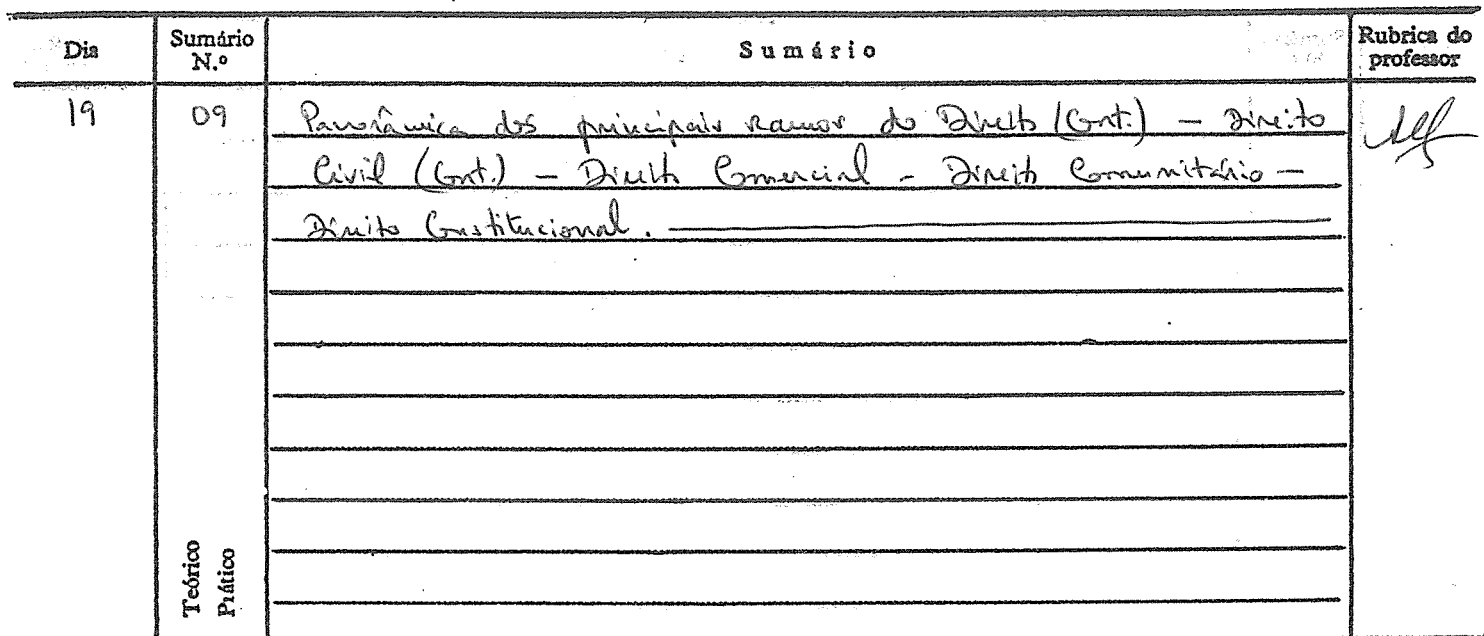 Dia Sumário N.º Sumário Rubrica do professor
19 09 Panorâmica dos principais ramos do Direito (Cont.) — Direito
Civil (Cont.) — Direito Comercial - Direito Comunitário —
Direito Constitucional.
Teórico
Prático